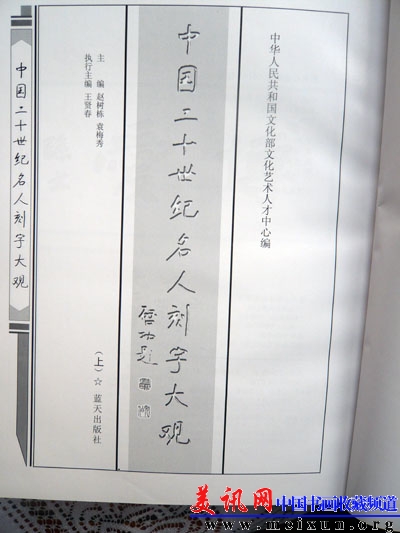 中华人民共和国文化部文化艺术人才中心编
中国二十世纪名人刻字大观
启功题
主 编 赵树栋 袁梅秀
执行主编 王贤春
(上)☆ 蓝天出版社
中国二十世纪名人刻字大观
美讯网 中国书画收藏频道
www.meixun.org